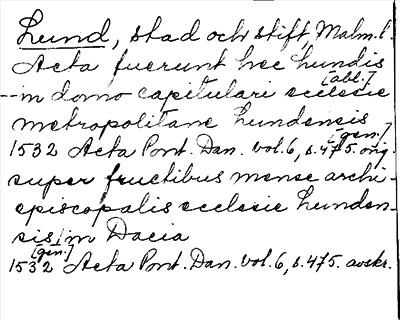 Lund, stad och stift, Malm. l.
Acta fuerunt hec Lundis
[abl.]
--in domo capitulari ecclesie
metropolitane Lundensis
[gen.]
1532 Acta Pont. Dan. vol. 6, s. 475. orig.
super fructibus mense archi-
episcopalis ecclesie Lunden-
sis/in Dacia
[gen.]
1532 Acta Pont. Dan. vol. 6, s. 475. avskr.